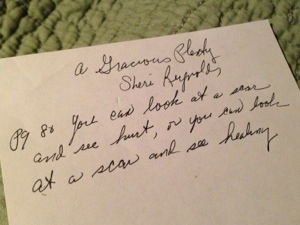 A Gracious Plenty
Sheri Reynolds
Pg 80 You can look at a scar
and see hurt, or you can look
at a scar and see healing